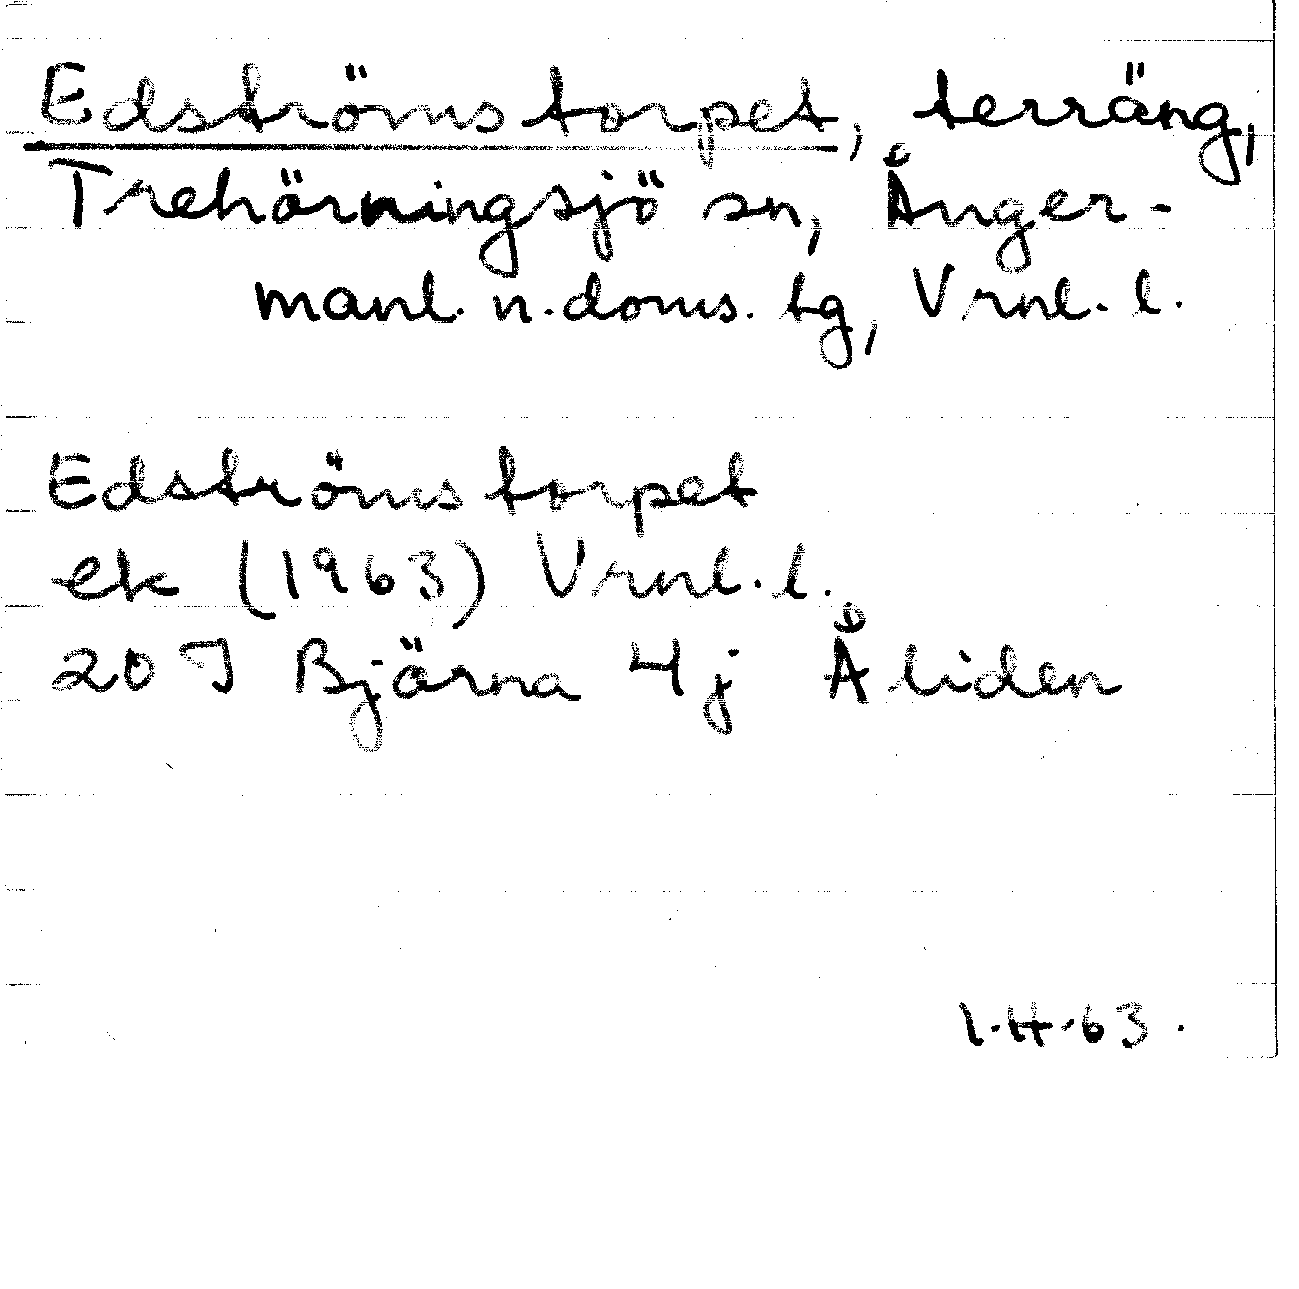 Edströmstorpet, terräng,
Trehörningsjö sn, Ånger-
manl. n. doms. tg, Vrnl. l.
Edströmstorpet
ek (1963) Vrnl. l.
20 J Björna 4j Åliden
1.H.63.